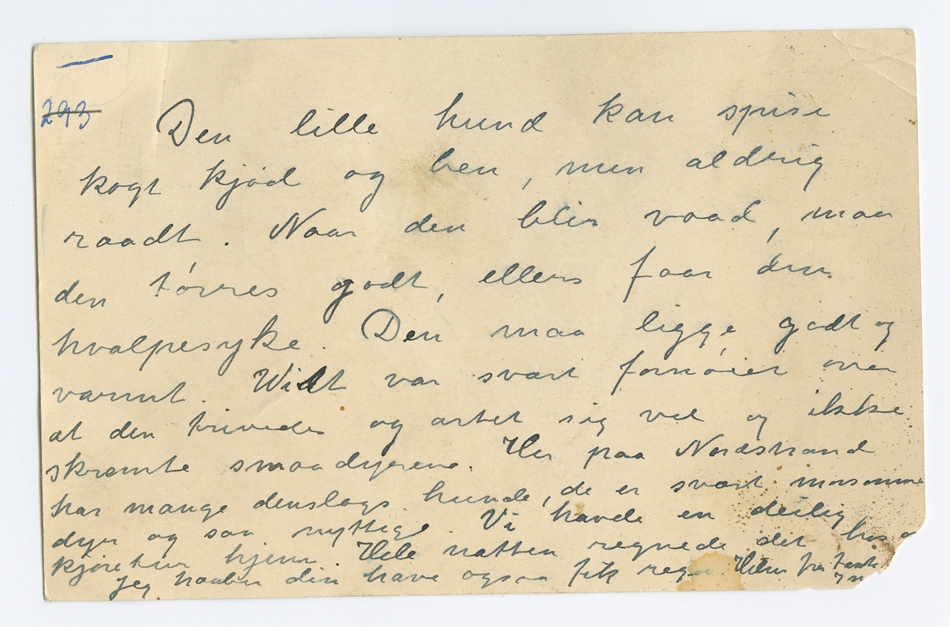 293
Den lille hund kan spise
kogt kjød og ben, men aldrig
raadt. Naar den blir vaad, maa
den tørres godt, ellers faar den
hvalpesyke. Den maa ligge godt og
varmt. Wildt var svært fornøiet over
at den trivedes og artet sig vel og ikke
skræmte smaadyrene. Her paa Nordstrand
har mange denslags hunde, de er svært morsomme
dyr og saa nyttige. Vi havde en deilig
kjøretur hjem. Hele natten regnede det hos
Jeg haaber din have ogsaa fik regn. Hilsen fra tante